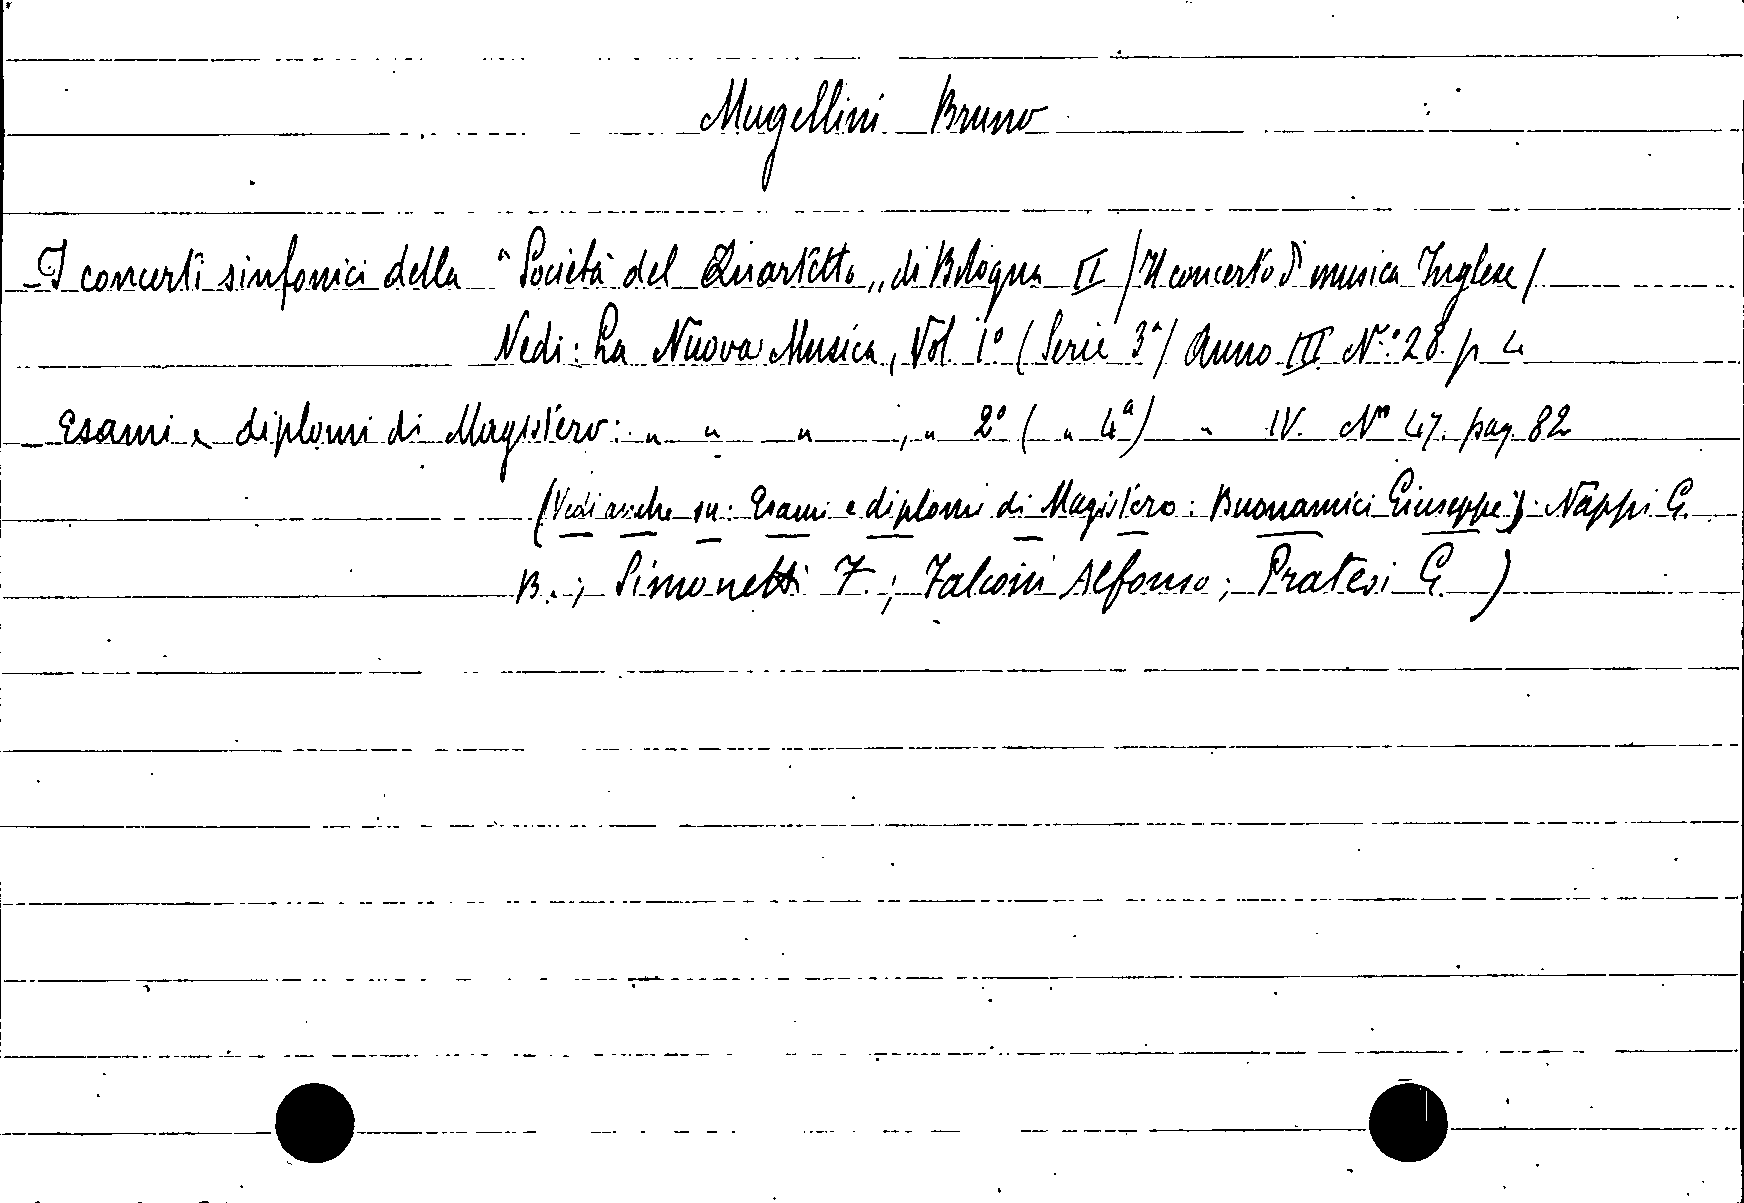 Mugellini Bruno
I concerti sinfonici della "Società del Quartetto„ di Bologna II (Il concerto di musica Inglese)
Vedi: La Nuova Musica, Vol. 1º (Serie 3ª) Anno III Nº 28. p 4
Esami e diplomi di Magistero: " " " , " 2º ( " 4ª) " IV. Nº 47. pag. 82
(Vedi anche su: Esami e diplomi di Magistero: Buonamici Giuseppe; Nappi G.
B.; Simonetti F.; Falconi Alfonso; Pratesi G. )